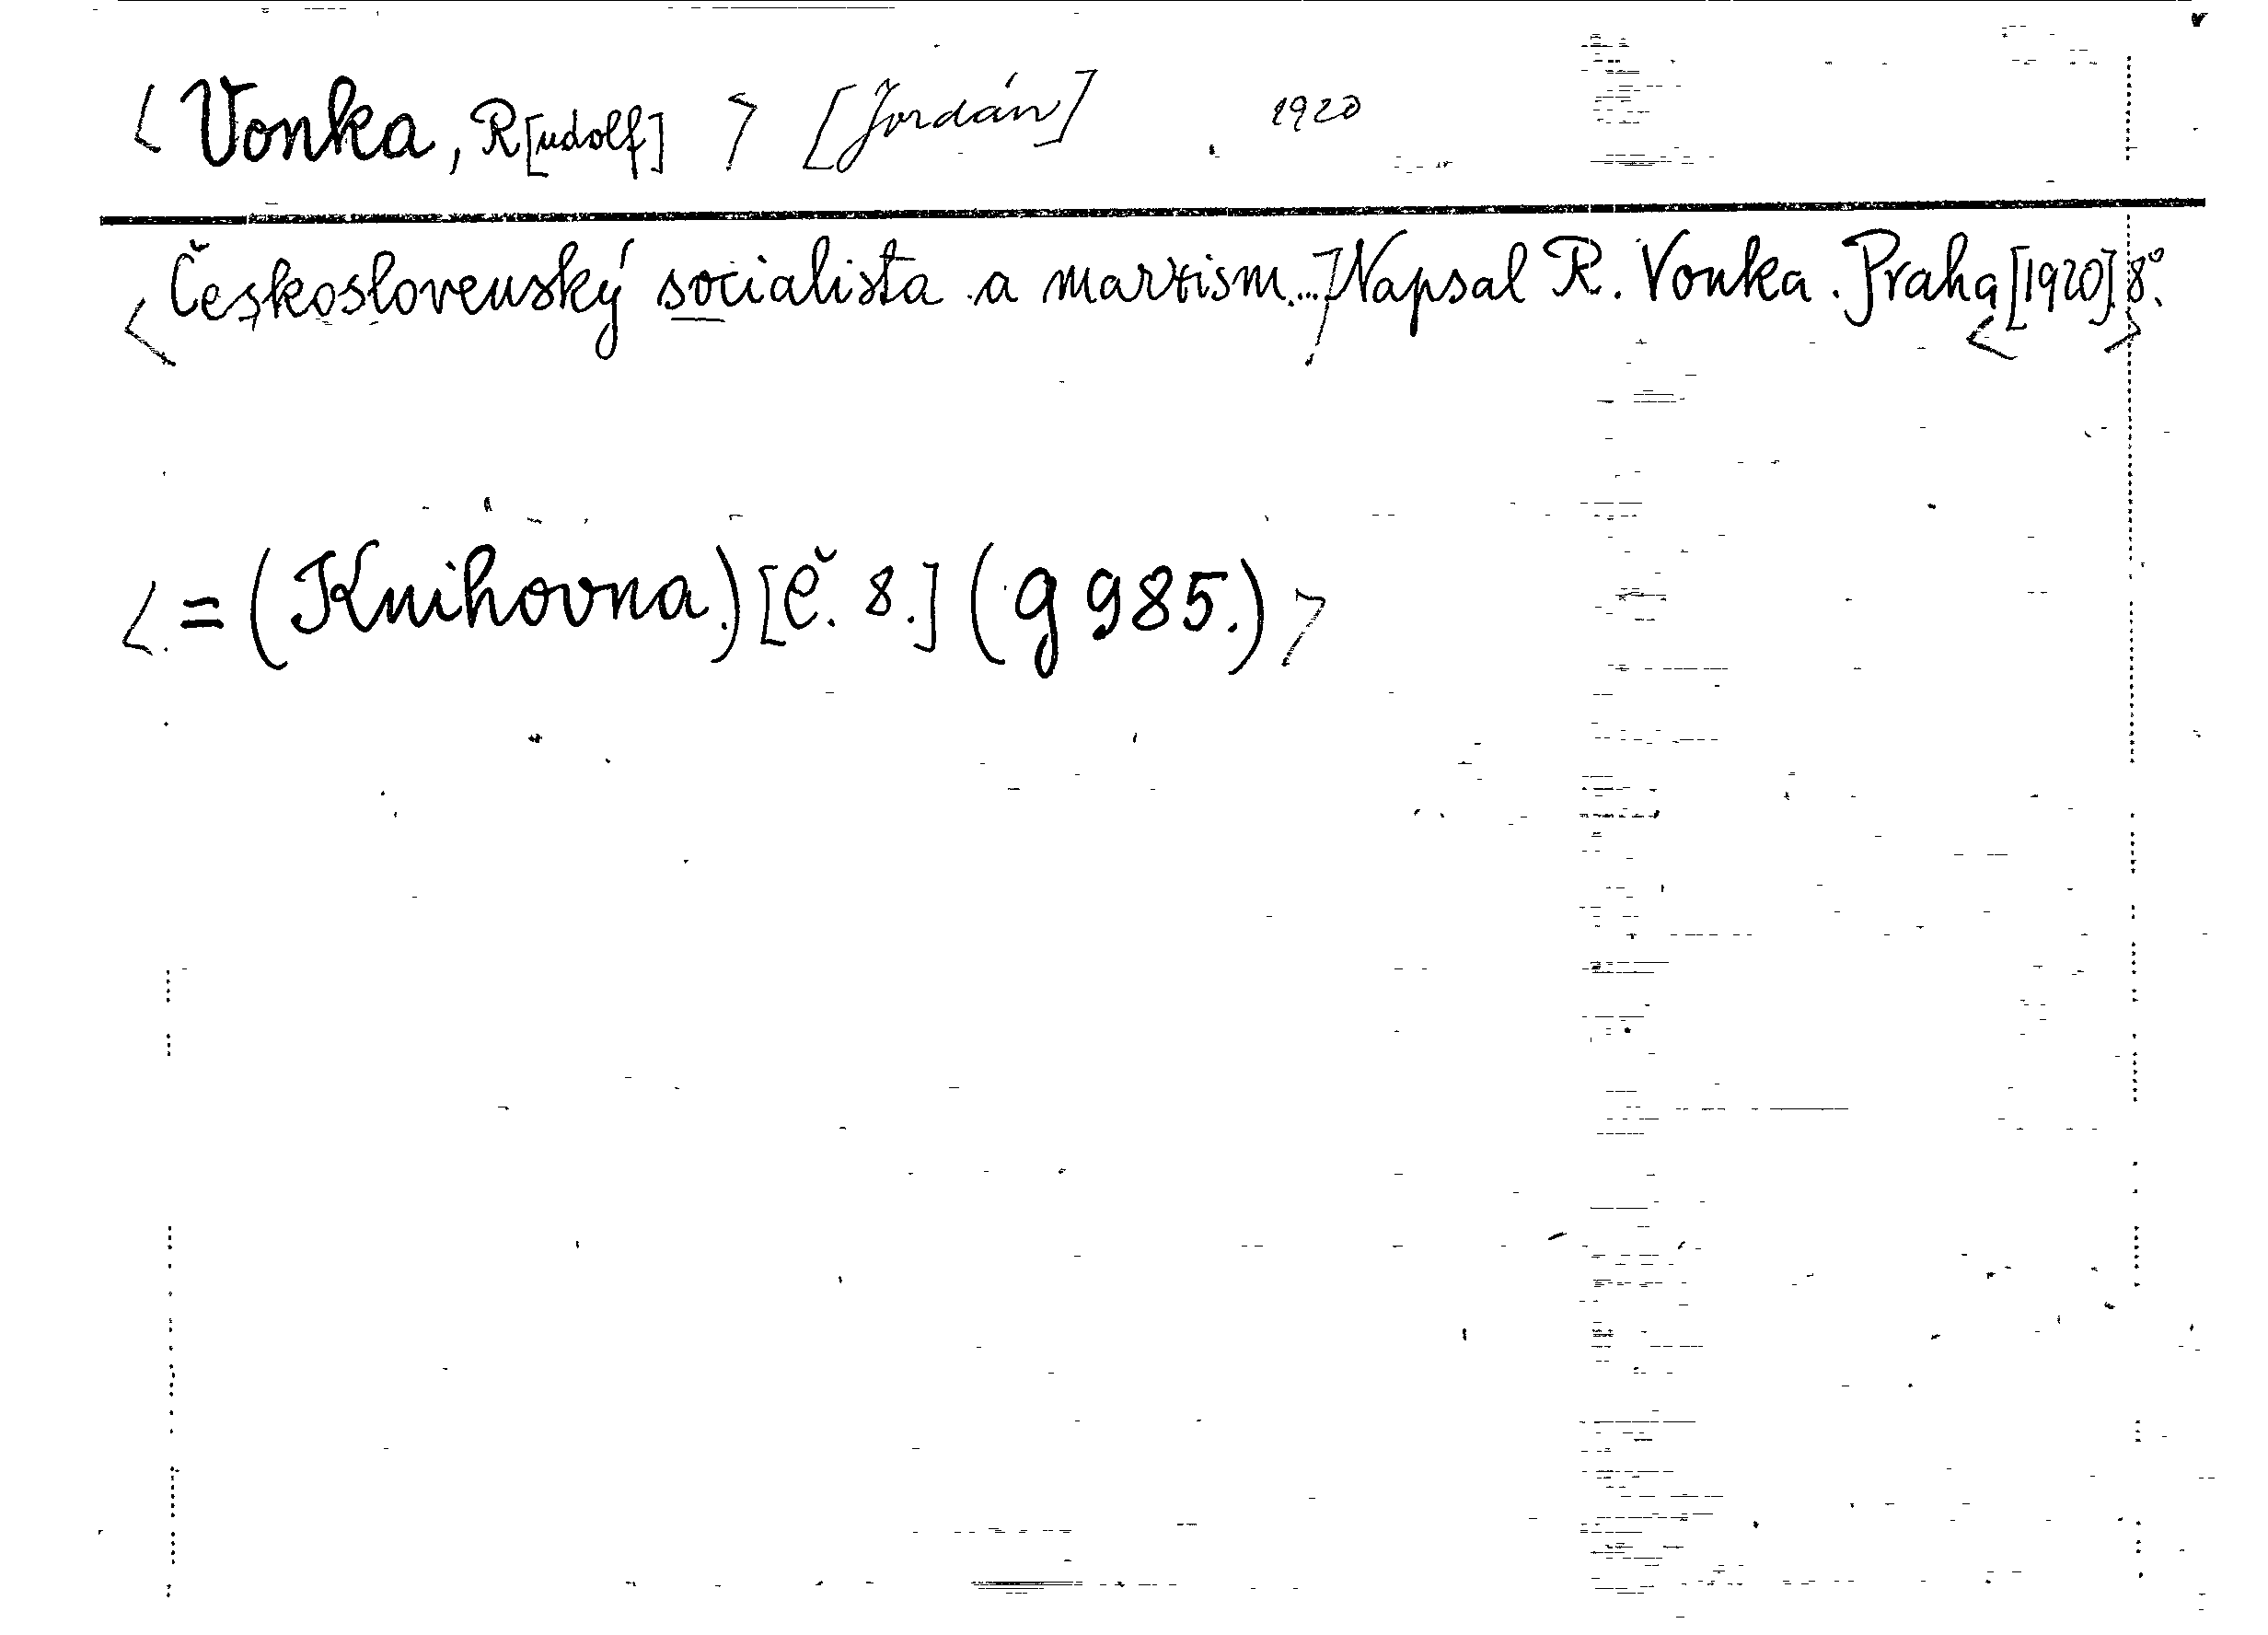 < Vonka, R[udolf] > [Jordán] 1920
< Československý socialista a marxism... > Napsal R. Vonka. Praha < [1920]. > 8°.
< = (Knihovna.) [č. 8.] (g 985.) >